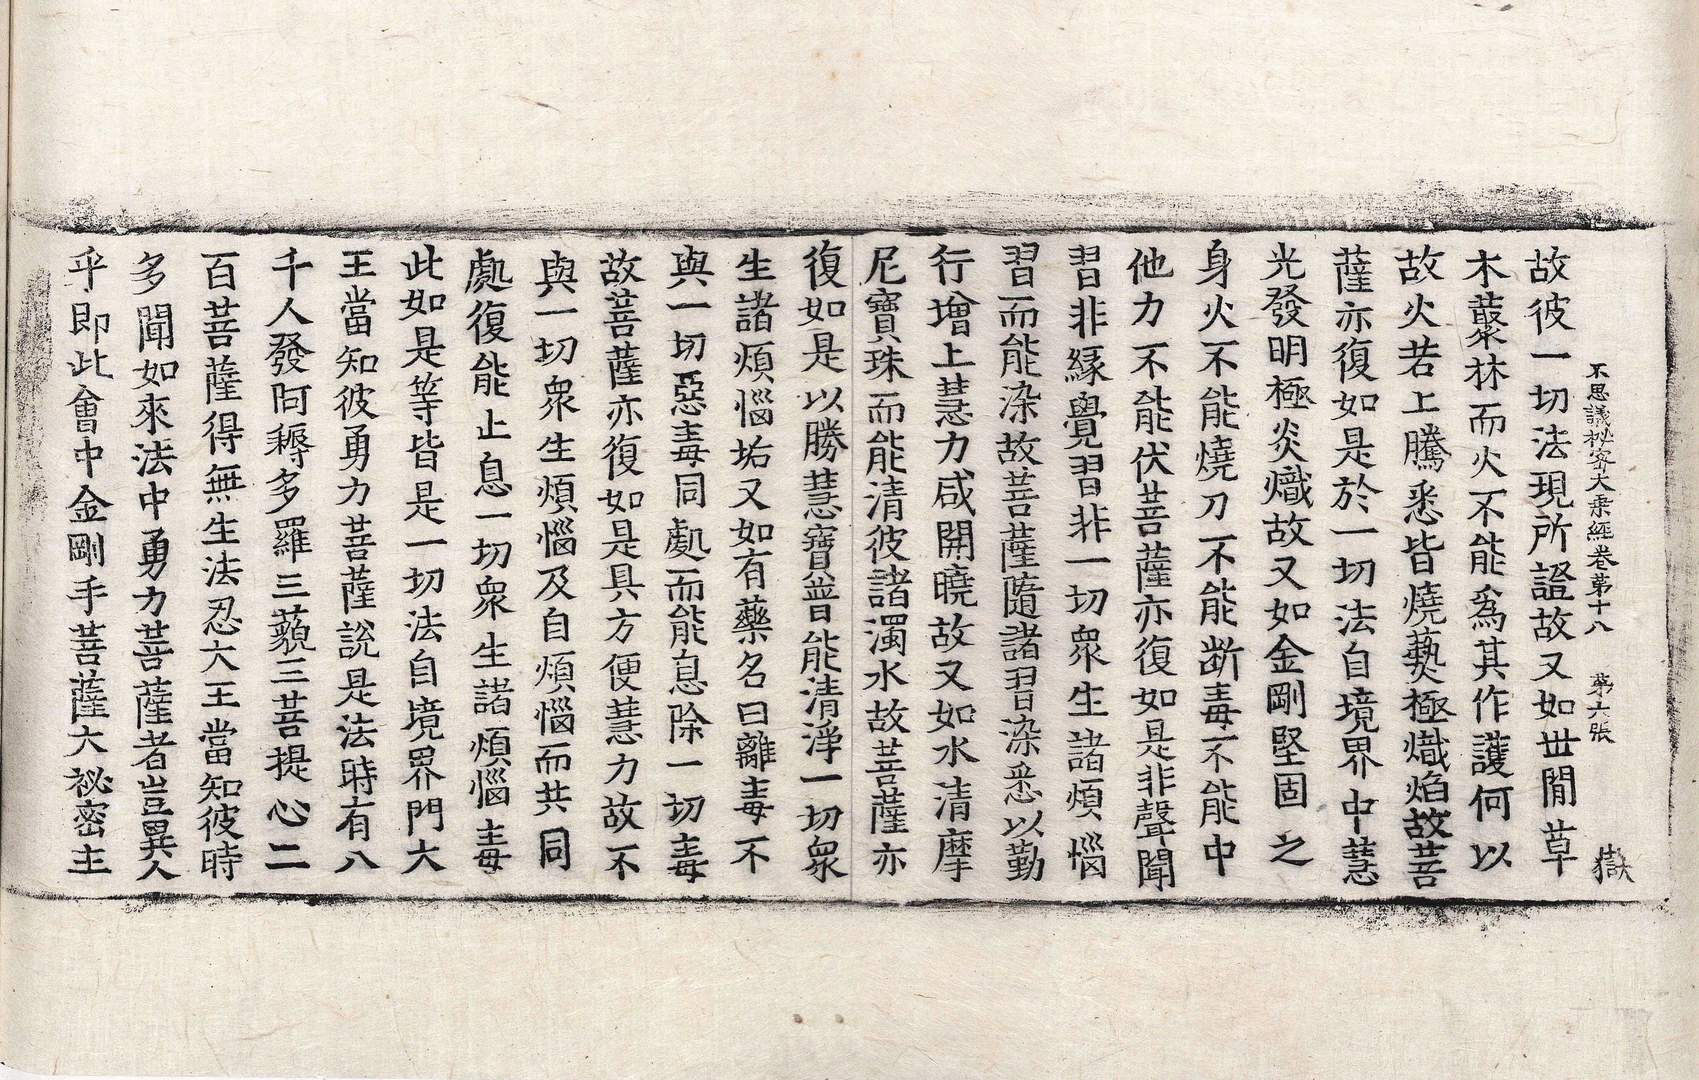 不思議祕密大乘經卷第十八　第六張　獄
故彼一切法現所證故又如世閒草
木叢林而火不能爲其作護何以
故火若上騰悉皆燒爇極熾焰故菩
薩亦復如是於一切法自境界中慧
光發明極炎熾故又如金剛堅固之
身火不能燒刀不能斷毒不能中
他力不能伏菩薩亦復如是非聲聞
習非緣覺習非一切衆生諸煩惱
習而能染故菩薩隨諸習染悉以勤
行增上慧力咸開曉故又如水清摩
尼寶珠而能清彼諸濁水故菩薩亦
復如是以勝慧寶普能清淨一切衆
生諸煩惱垢又如有藥名曰離毒不
與一切惡毒同處而能息除一切毒
故菩薩亦復如是具方便慧力故不
與一切衆生煩惱及自煩惱而共同
處復能止息一切衆生諸煩惱毒
此如是等皆是一切法自境界門大
王當知彼勇力菩薩說是法時有八
千人發阿耨多羅三藐三菩提心二
百菩薩得無生法忍大王當知彼時
多聞如來法中勇力菩薩者豈異人
乎即此會中金剛手菩薩大祕密主